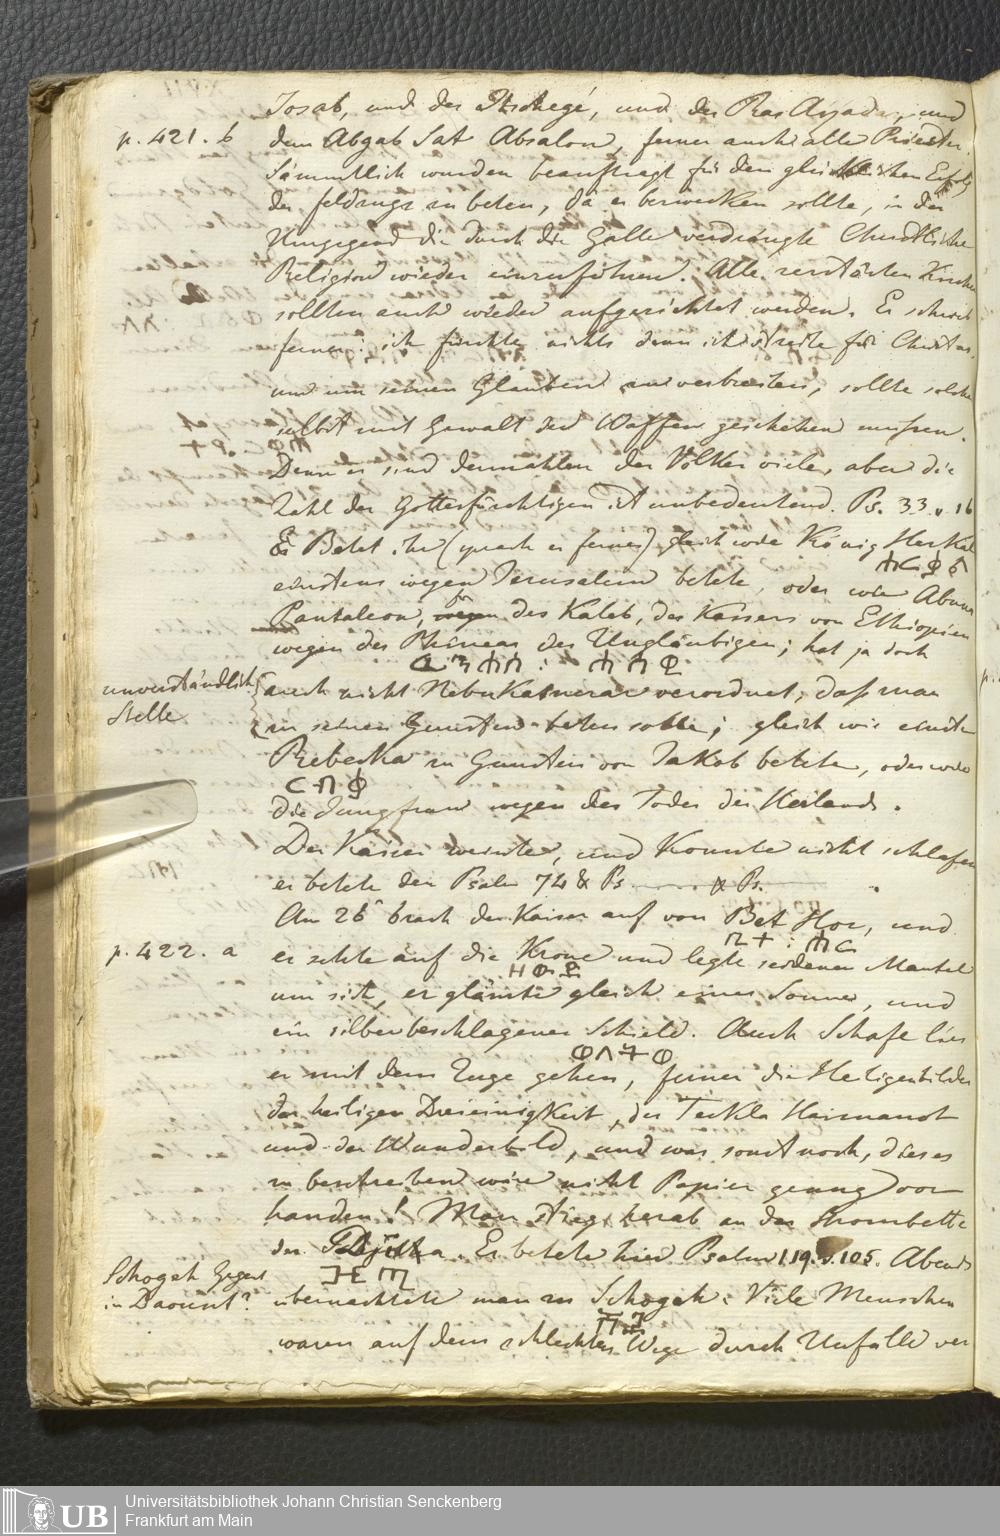 Josab, und der Itschegé, und der Ras Ayadar, und
p. 421. b dem Abgab Sat Absalon, ferner auch alle Priester.
Sämmtlich wurden beauftragt für den glücklichen Erfolg
des Feldzugs zu beten, da er bezwecken sollte, in der
Umgegend die durch die Galla verdrängte Christliche
Religion wieder einzuführen. Alle zerstörten Kirchen
sollten auch wieder aufgerichtet werden. Er schrieb
ferner: ich fürchte nichts denn ich streite für Christus,
und um seinen Glauben zu verbreiten, sollte solches
selbst mit Gewalt der Waffen geschehen müssen.
Denn es sind dermahlen der Völker viele, aber die
Zahl der Gottesfürchtigen ist unbedeutend. Ps. 33 v. 16
Betet ihr (sprach er ferner) gleich wie König Herkal
ሕርቃል
einstens wegen Jerusalem betete, oder wie Abuna
Pantaleon, für des Kaleb, des Kaisers von Ethiopien
wegen des Phineas des Ungläubigen; hat ja doch
unverständliche auch nicht Nebukatnezar verordnet, daß man
Stelle zu seinen Gunsten beten sollte; gleich wie einst
Rebecka zu Gunsten von Jakob betete, oder wie
ርብቃ
die Jungfrau wegen des Todes des Heilands.
Der Kaiser weinte, und konnte nicht schlafen
er betete den Psalm 74 & Ps. ...... Ps.
Am 26ⁿ brach der Kaiser auf von Bet Hor, und
ቤተ : ሖር
p. 422. a er setzte auf die Krone und legte seidenen Mantel
ዘውድ
um sich, er glänzte gleich einer Sonne, und
ein silberbeschlagener Schield. Auch Schafe lies
er mit dem Zuge gehen, ferner die Heiligenbilder
der heiligen Dreieinigkeit, des Teckla Haimanot
und der Wunderbild, und was sonst noch, dieses
zu beschreiben wäre nicht Papier genug vor
handen! Man stieg herab an das Strombette
der Djitta. Er betete hier Psalm 119. v. 105. Abends
Schogeh Gegend
in Daount? übernachtete man zu Schogeh. Viele Menschen
waren auf dem schlechten Wege durch Unfälle ver
Universitätsbibliothek Johann Christian Senckenberg
Frankfurt am Main
UB